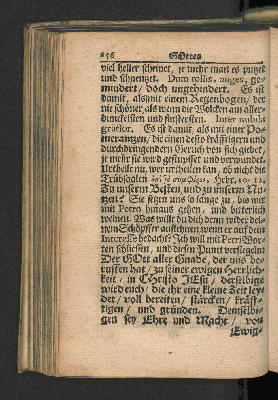 256 GOttes
viel heller scheinet, je mehr man es putzet
und schneutzet. Dum tollis, auges, ge-
mindert / doch ungehindert. Es ist
damit, als mit einem Regenbogen / der
nie schöner als wenn die Wolcken am aller-
dunckelsten und finstersten. Inter nubila
gratior. Es ist damit, als mit einer Po-
merantzen / die einen desto kräfftigern und
durchdringendern Geruch von sich giebet,
je mehr sie wird gequetschet und verwundet.
Urtheile nu, wer urtheilen kan, ob nicht die
Trübsahlen Hebr. 12.
Zu unserm Besten, und zu unserm Nu-
tzen? Sie setzen uns so lange zu, bis wir
mit Petro hinaus gehen, und bitterlich
weinen. Was willt du dich denn wider dei-
nen Schöpffer auflehnen wenn er auf dein
Interesse bedacht? Ich will mit Petri Wor-
ten schliessen, und diesen Punct versiegeln:
Der GOtt aller Gnade, der uns be-
ruffen hat / zu seiner ewigen Herrlich-
keit / in CHristo JEsu / derselbige
wird euch / die ihr eine kleine Zeit ley-
det / voll bereiten / stärcken / kräff-
tigen / und gründen. Demselbi-
gen sey Ehre und Macht / von
Ewig-